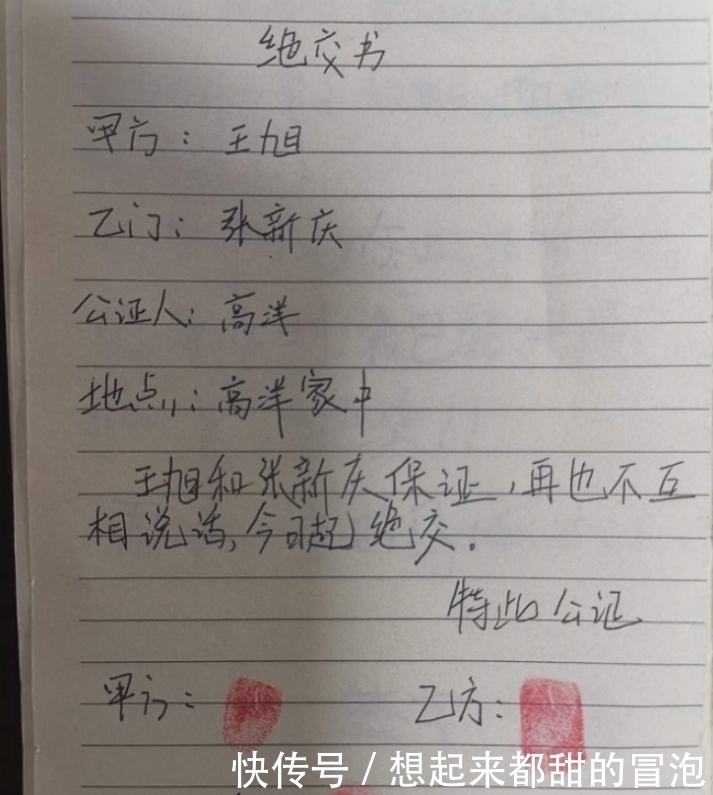 绝交书
甲方：王旭
乙门：张新庆
公证人：高洋
地点：高洋家中
王旭和张新庆保证，再也不互
相说话，今日起绝交。
特此公证
甲方：
乙方：
快传号 / 想起来都甜的冒泡